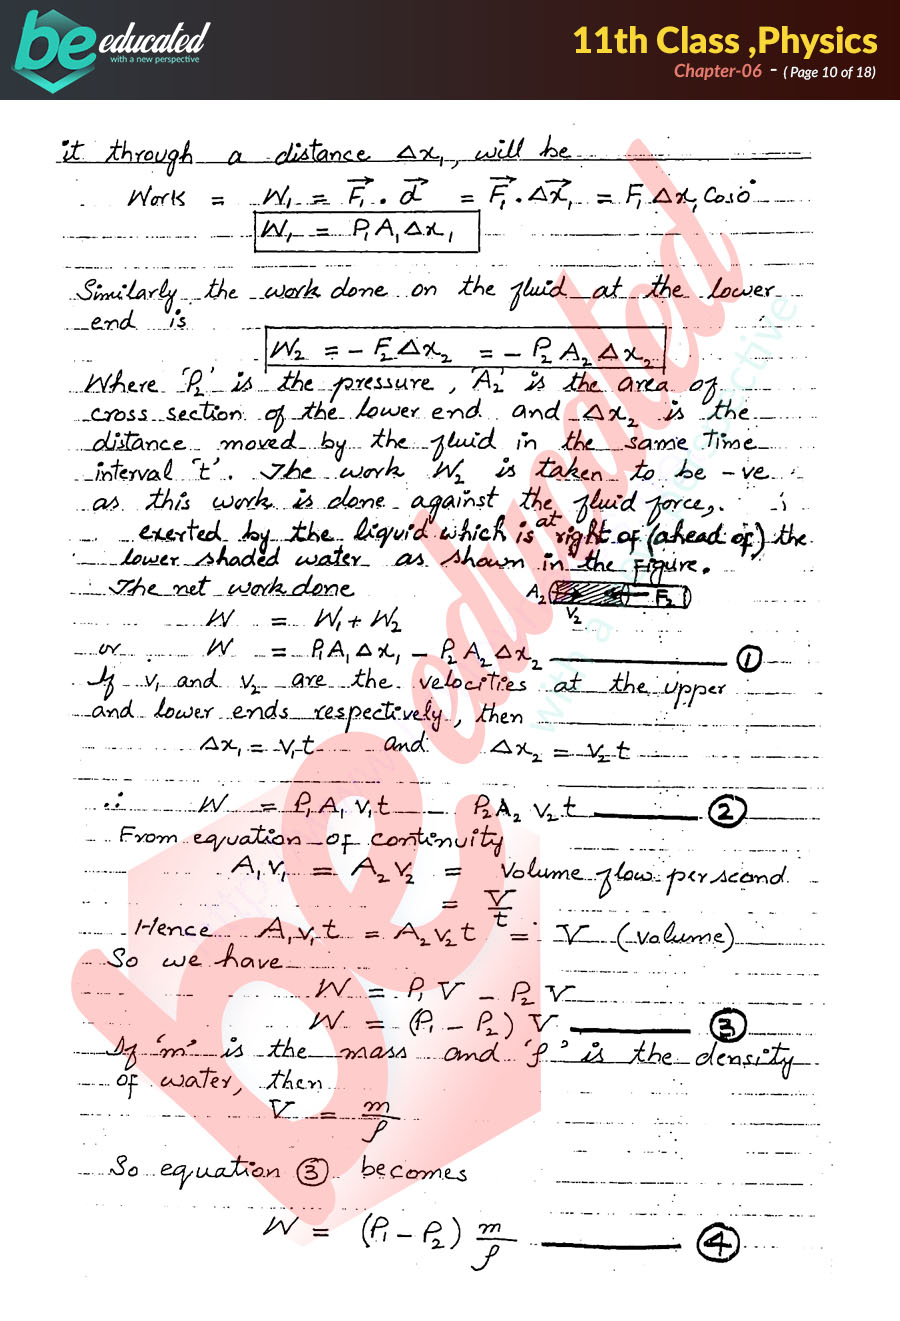 be educated
with a new perspective
11th Class ,Physics
Chapter-06 - ( Page 10 of 18)
it through a distance Δx₁, will be
Work = W₁ = F₁⃗ . d⃗ = F₁⃗ . Δx₁⃗ = F₁ Δx₁ Cos0°
W₁ = P₁ A₁ Δx₁
Similarly the work done on the fluid at the lower
end is
W₂ = - F₂ Δx₂ = - P₂ A₂ Δx₂
Where 'P₂' is the pressure, 'A₂' is the area of
cross section of the lower end and Δx₂ is the
distance moved by the fluid in the same time
interval 't'. The work W₂ is taken to be -ve
as this work is done against the fluid force,
exerted by the liquid which is at right of (ahead of) the
lower shaded water as shown in the Figure.
The net work done
A₂ F₂
V₂
W = W₁ + W₂
or W = P₁A₁ Δx₁ - P₂ A₂ Δx₂ ① 
If v₁ and v₂ are the velocities at the upper
and lower ends respectively, then
Δx₁ = v₁t and Δx₂ = v₂t
∴ W = P₁A₁ v₁t - P₂A₂ v₂t ②
From equation of continuity
A₁v₁ = A₂v₂ = Volume flow per scond
= V/t
Hence A₁v₁t = A₂v₂t = V (volume)
So we have
W = P₁V - P₂V
W = (P₁ - P₂) V ③
If 'm' is the mass and 'ρ' is the density
of water, then
V = m/ρ
So equation ③ becomes
W = (P₁ - P₂) m/ρ ④
be educated